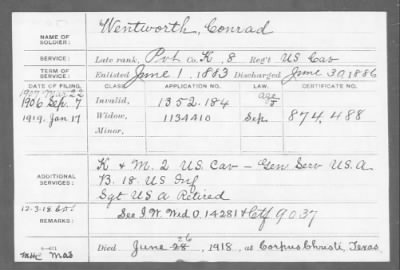 NAME OF SOLDIER: Wentworth, Conrad
SERVICE: Late rank, Pvt Co. K, 8 Reg't US Cav
TERM OF SERVICE: Enlisted June 1, 1883 Discharged June 30, 1886
DATE OF FILING. CLASS. APPLICATION NO. LAW. CERTIFICATE NO.
1907 Mar 22
1906 Sep. 7 Invalid, 1352.184 age
1919. Jan 17 Widow, 1134410 Sep. 874,488
Minor,
ADDITIONAL SERVICES: K & M. 2 US. Cav – Gen Serv U.S.A
B. 18. US Inf
Sgt US A Retired
12.3.18
REMARKS: See I. W. Wid O. 14281 & Ctf 9037
Died June 26, 1918, at Corpus Christi, Texas.